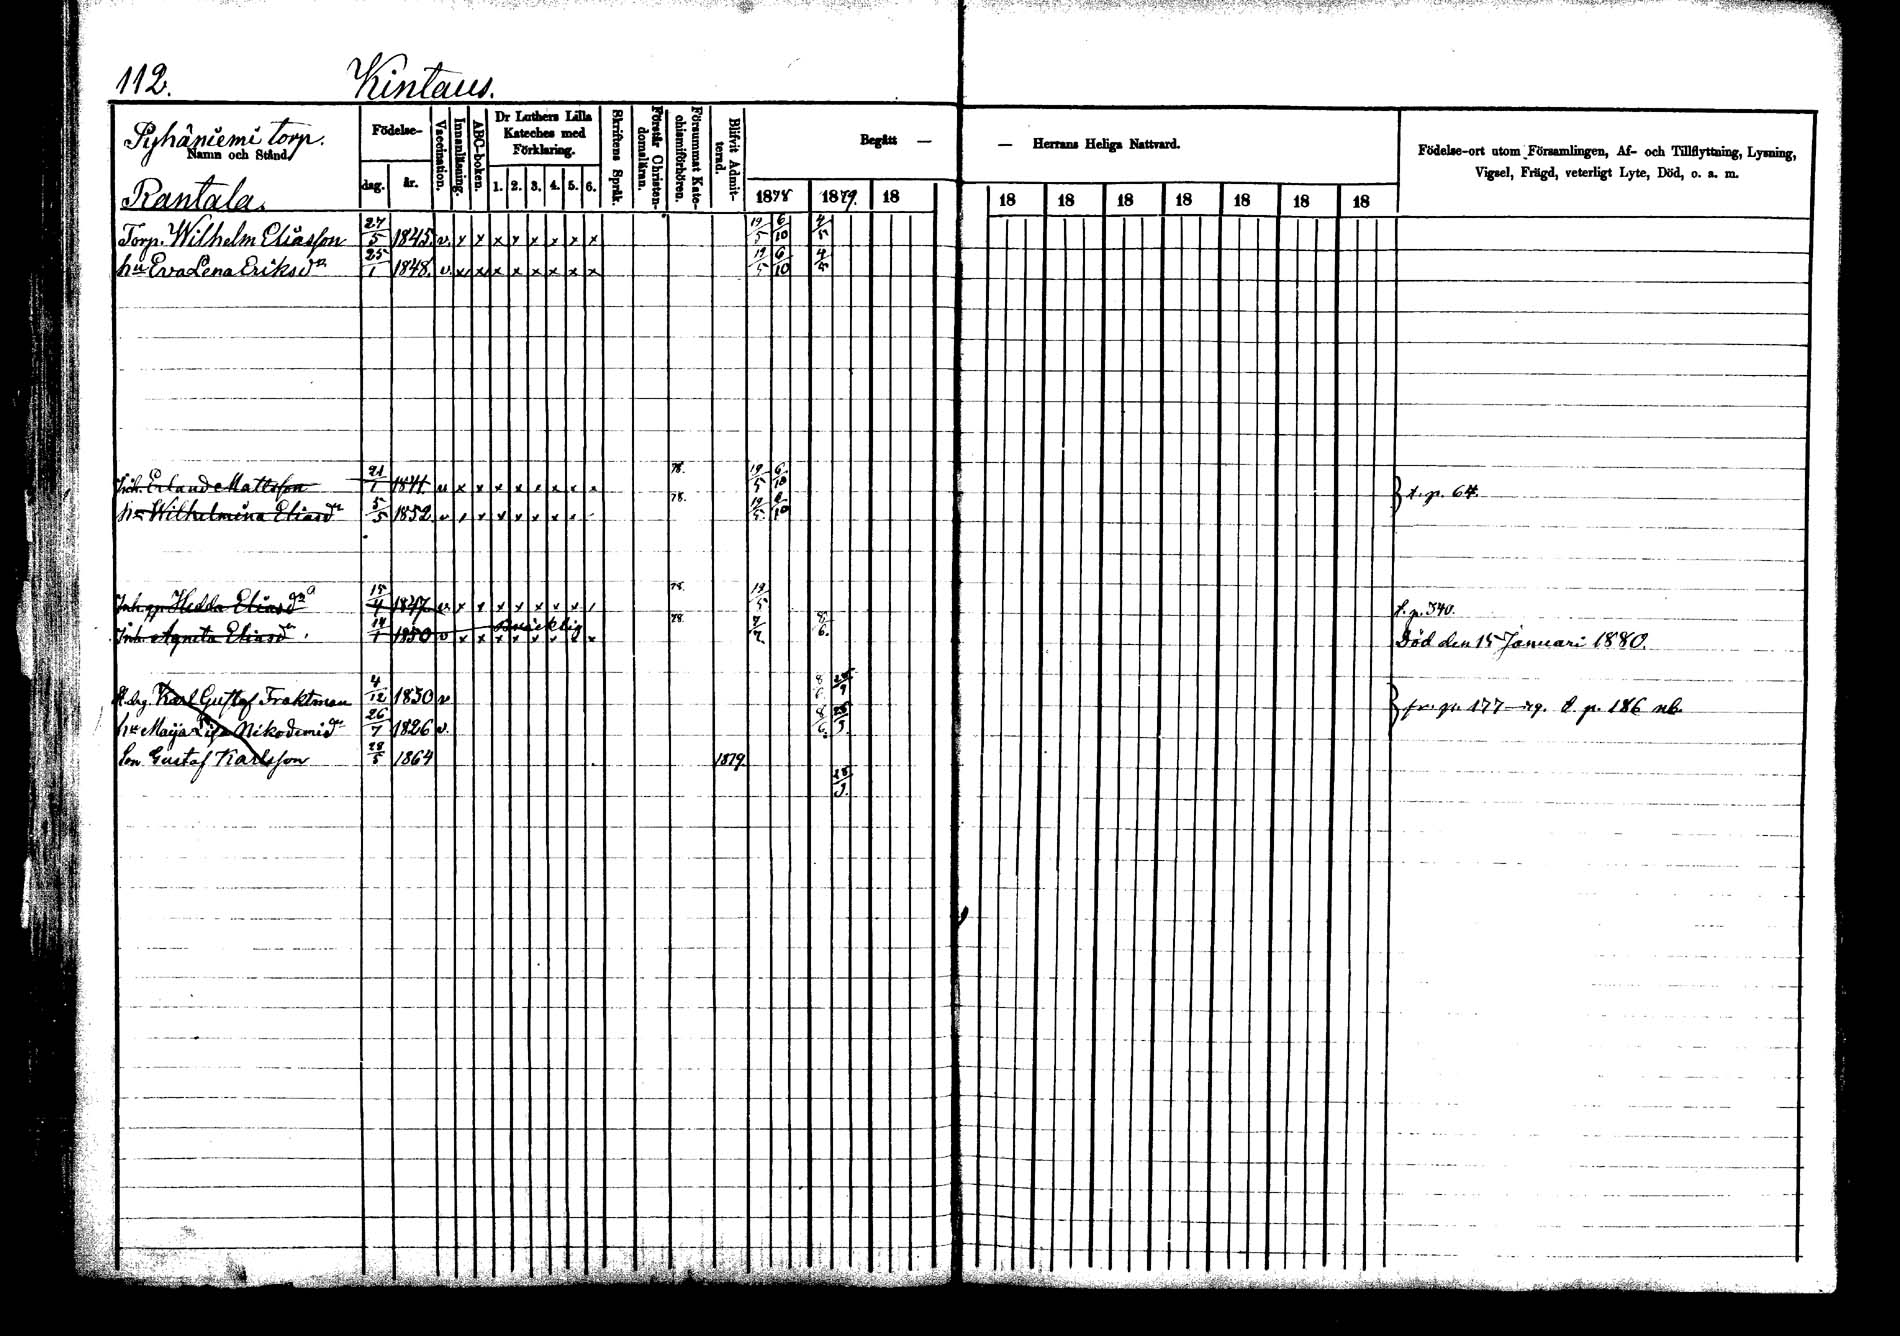 112. Kintaus.
Pyhäniemi torp.
Namn och Stånd.
Rantala.
Födelse-
dag. år.
Vaccination.
Innanläsning.
ABC-boken.
Dr Luthers Lilla Kateches med Förklaring.
1. 2. 3. 4. 5. 6.
Skriftens Språk.
Förstår Christendomsläran.
Försummat Katechismiförhören.
Blifvit Admitterad.
Begått —
1878 1879. 18
— Herrans Heliga Nattvard.
18 18 18 18 18 18 18
Födelse-ort utom Församlingen, Af- och Tillflyttning, Lysning,
Vigsel, Frägd, veterligt Lyte, Död, o. a. m.
Torp. Wilhelm Eliasson 27/5 1845. v. x x x x x x x x 19/5 6/10 4/5
hu Eva Lena Eriksdr 25/1 1848. v. x x x x x x x x 19/5 6/10 4/5
Inh. Erland Mattsson 21/1 1841. v x x x x x x x x 78. 19/5 6/10 } t. p. 64.
hu Wilhelmina Eliasdr 5/5 1852 v x x x x x x x 78. 19/5 6/10
Hedda Eliasdr 15/4 1847 v. x x x x x x x x 78. 19/5 t. p. 340.
Inh. Agneta Eliasdr 14/1 1850 v x x x x x x x x 78. 7/7 8/6. Död den 15 Januari 1880.
Karl Gustaf Fraktman 4/12 1830 v 8/6 } fr. p. 177 t. p. 186 nb.
hu Maija Lisa Nikodemidr 26/7 1826 v. 8/6. 28/9
Son Gustaf Karlsson 28/5 1864 1879. 28/9.